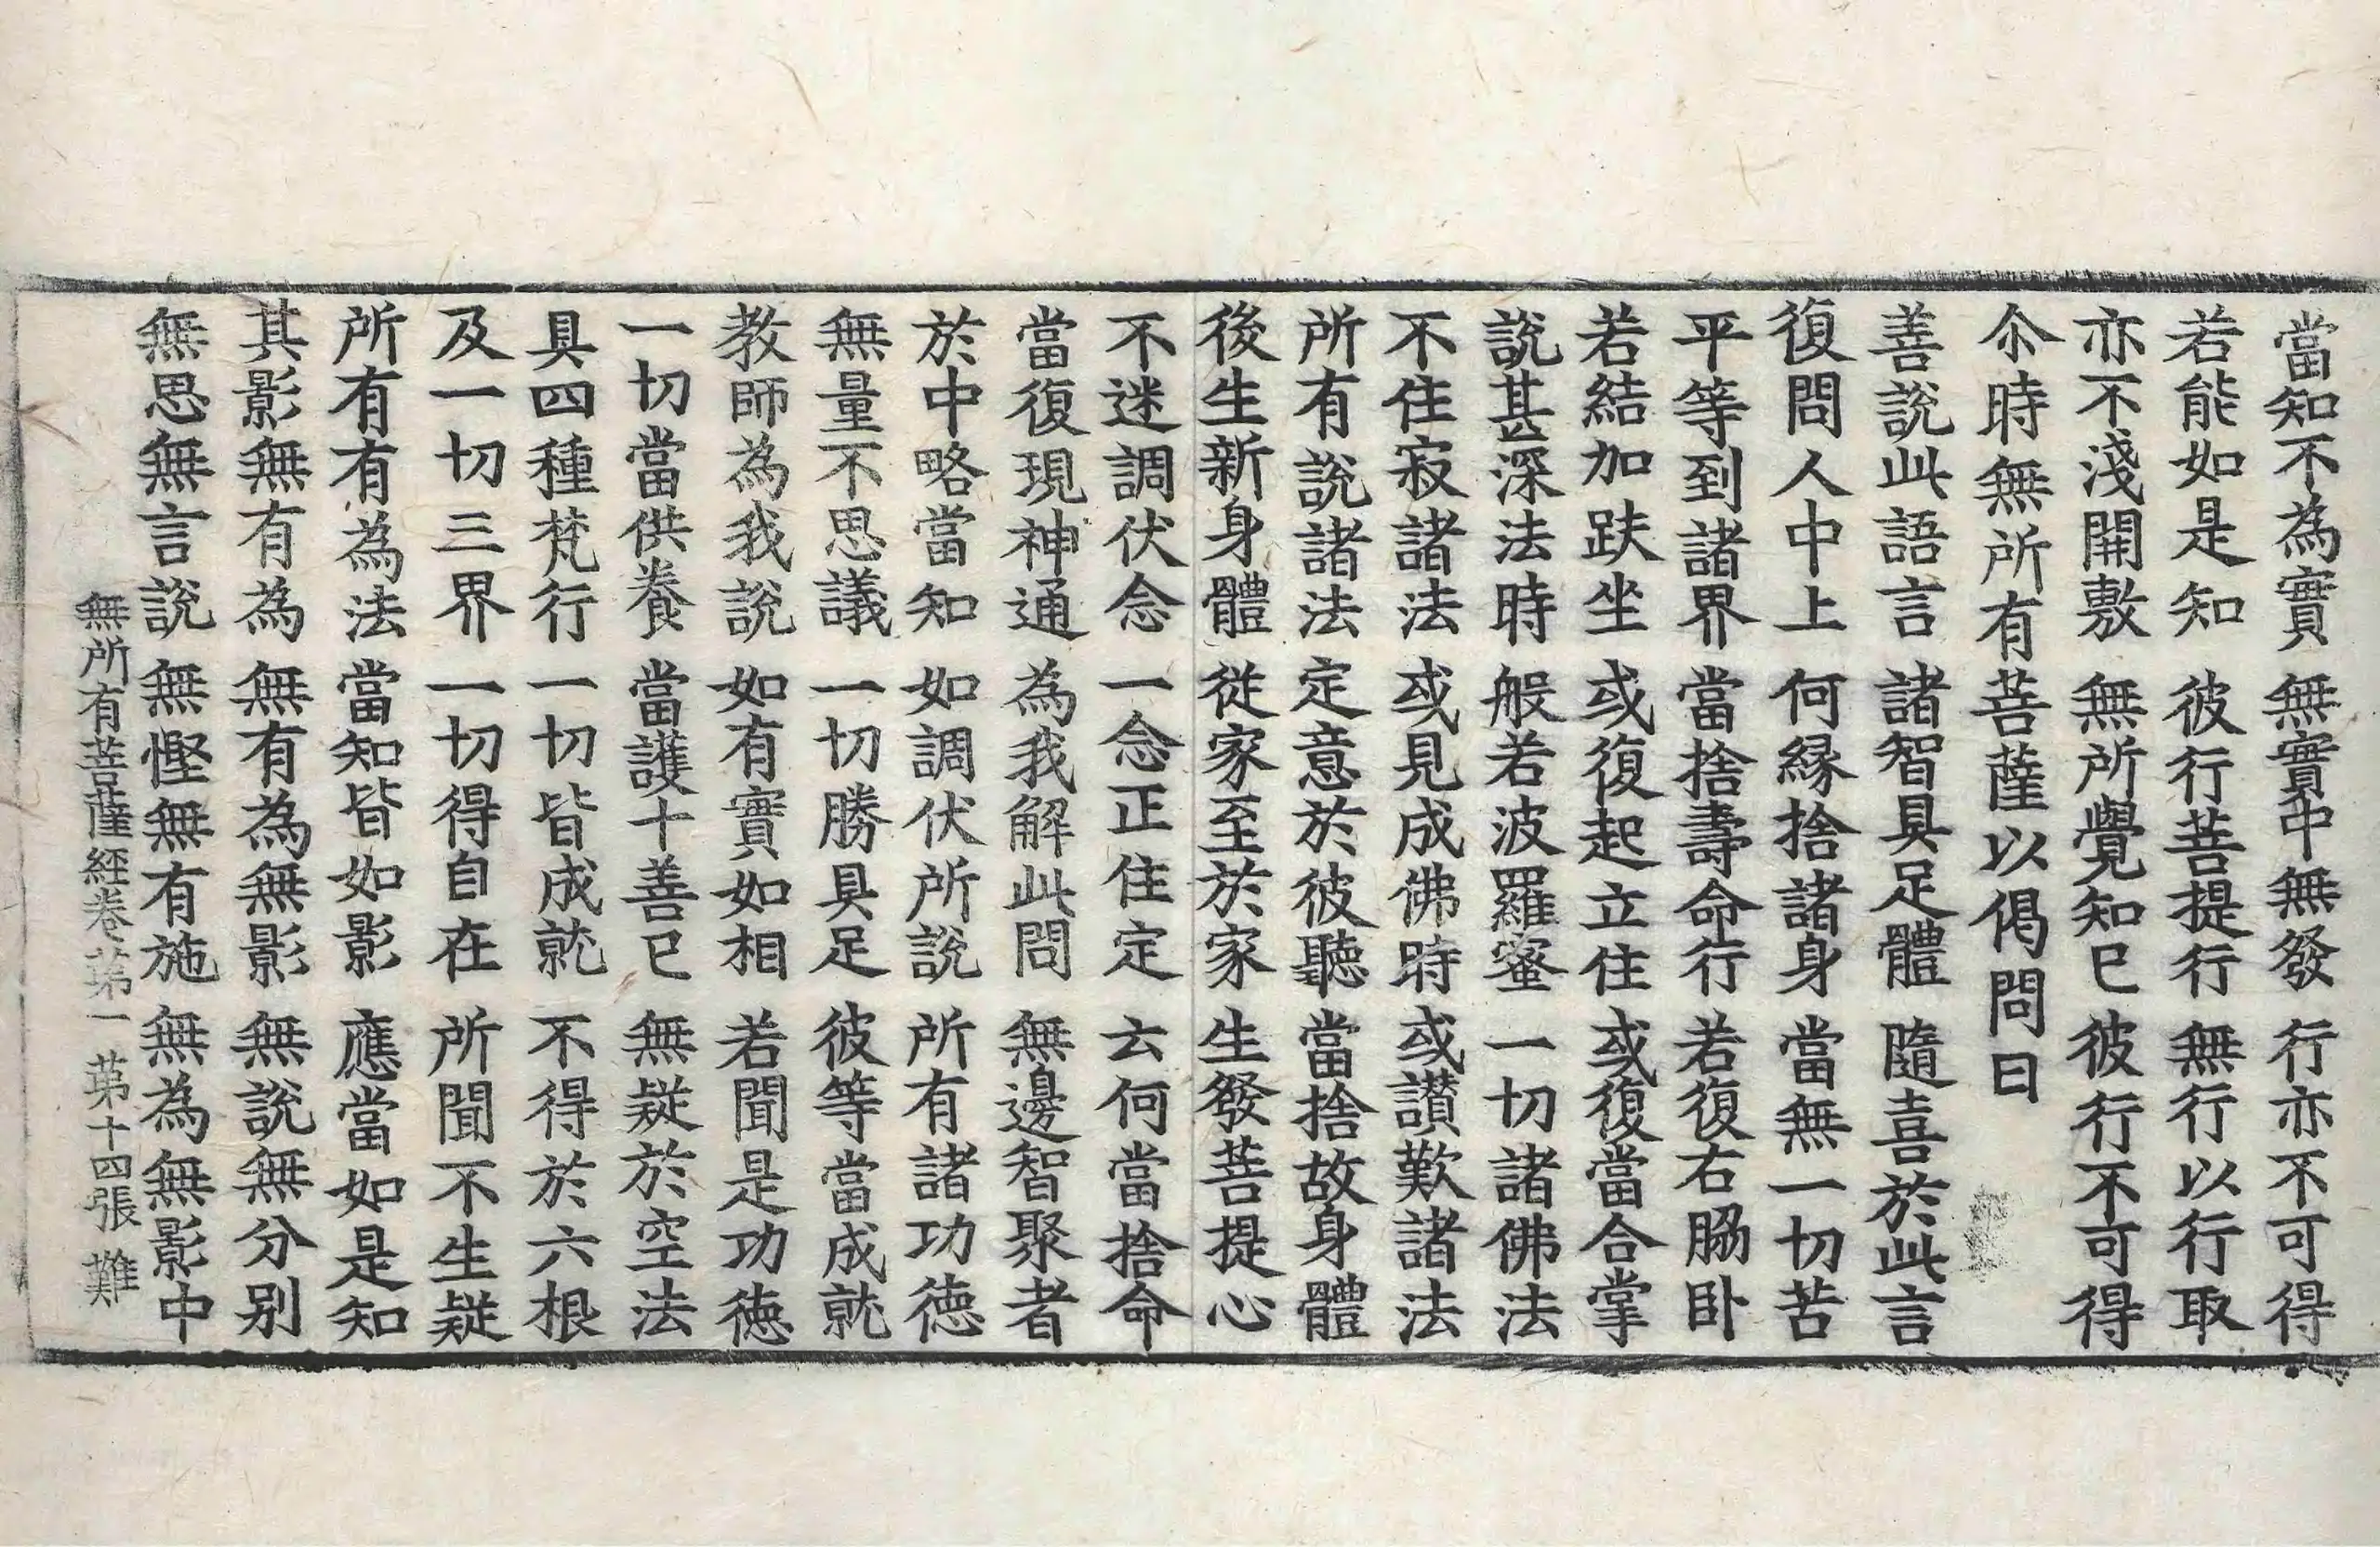 當知不為實　無實中無發　行亦不可得
若能如是知　彼行菩提行　無行以行取
亦不淺開敷　無所覺知已　彼行不可得
尒時無所有菩薩以偈問曰
善說此語言　諸智具足體　隨喜於此言
復問人中上　何緣捨諸身　當無一切苦
平等到諸界　當捨壽命行　若復右脇卧
若結加趺坐　或復起立住　或復當合掌
說甚深法時　般若波羅蜜　一切諸佛法
不住寂諸法　或見成佛時　或讃歎諸法
所有說諸法　定意於彼聽　當捨故身體
後生新身體　從家至於家　生發菩提心
不迷調伏念　一念正住定　云何當捨命
當復現神通　為我解此問　無邊智聚者
於中略當知　如調伏所說　所有諸功德
無量不思議　一切勝具足　彼等當成就
教師為我說　如有實如相　若聞是功德
一切當供養　當護十善已　無疑於空法
具四種梵行　一切皆成就　不得於六根
及一切三界　一切得自在　所聞不生疑
所有有為法　當知皆如影　應當如是知
其影無有為　無有為無影　無說無分別
無思無言說　無慳無有施　無為無影中
無所有菩薩經卷第一　第十四張　難